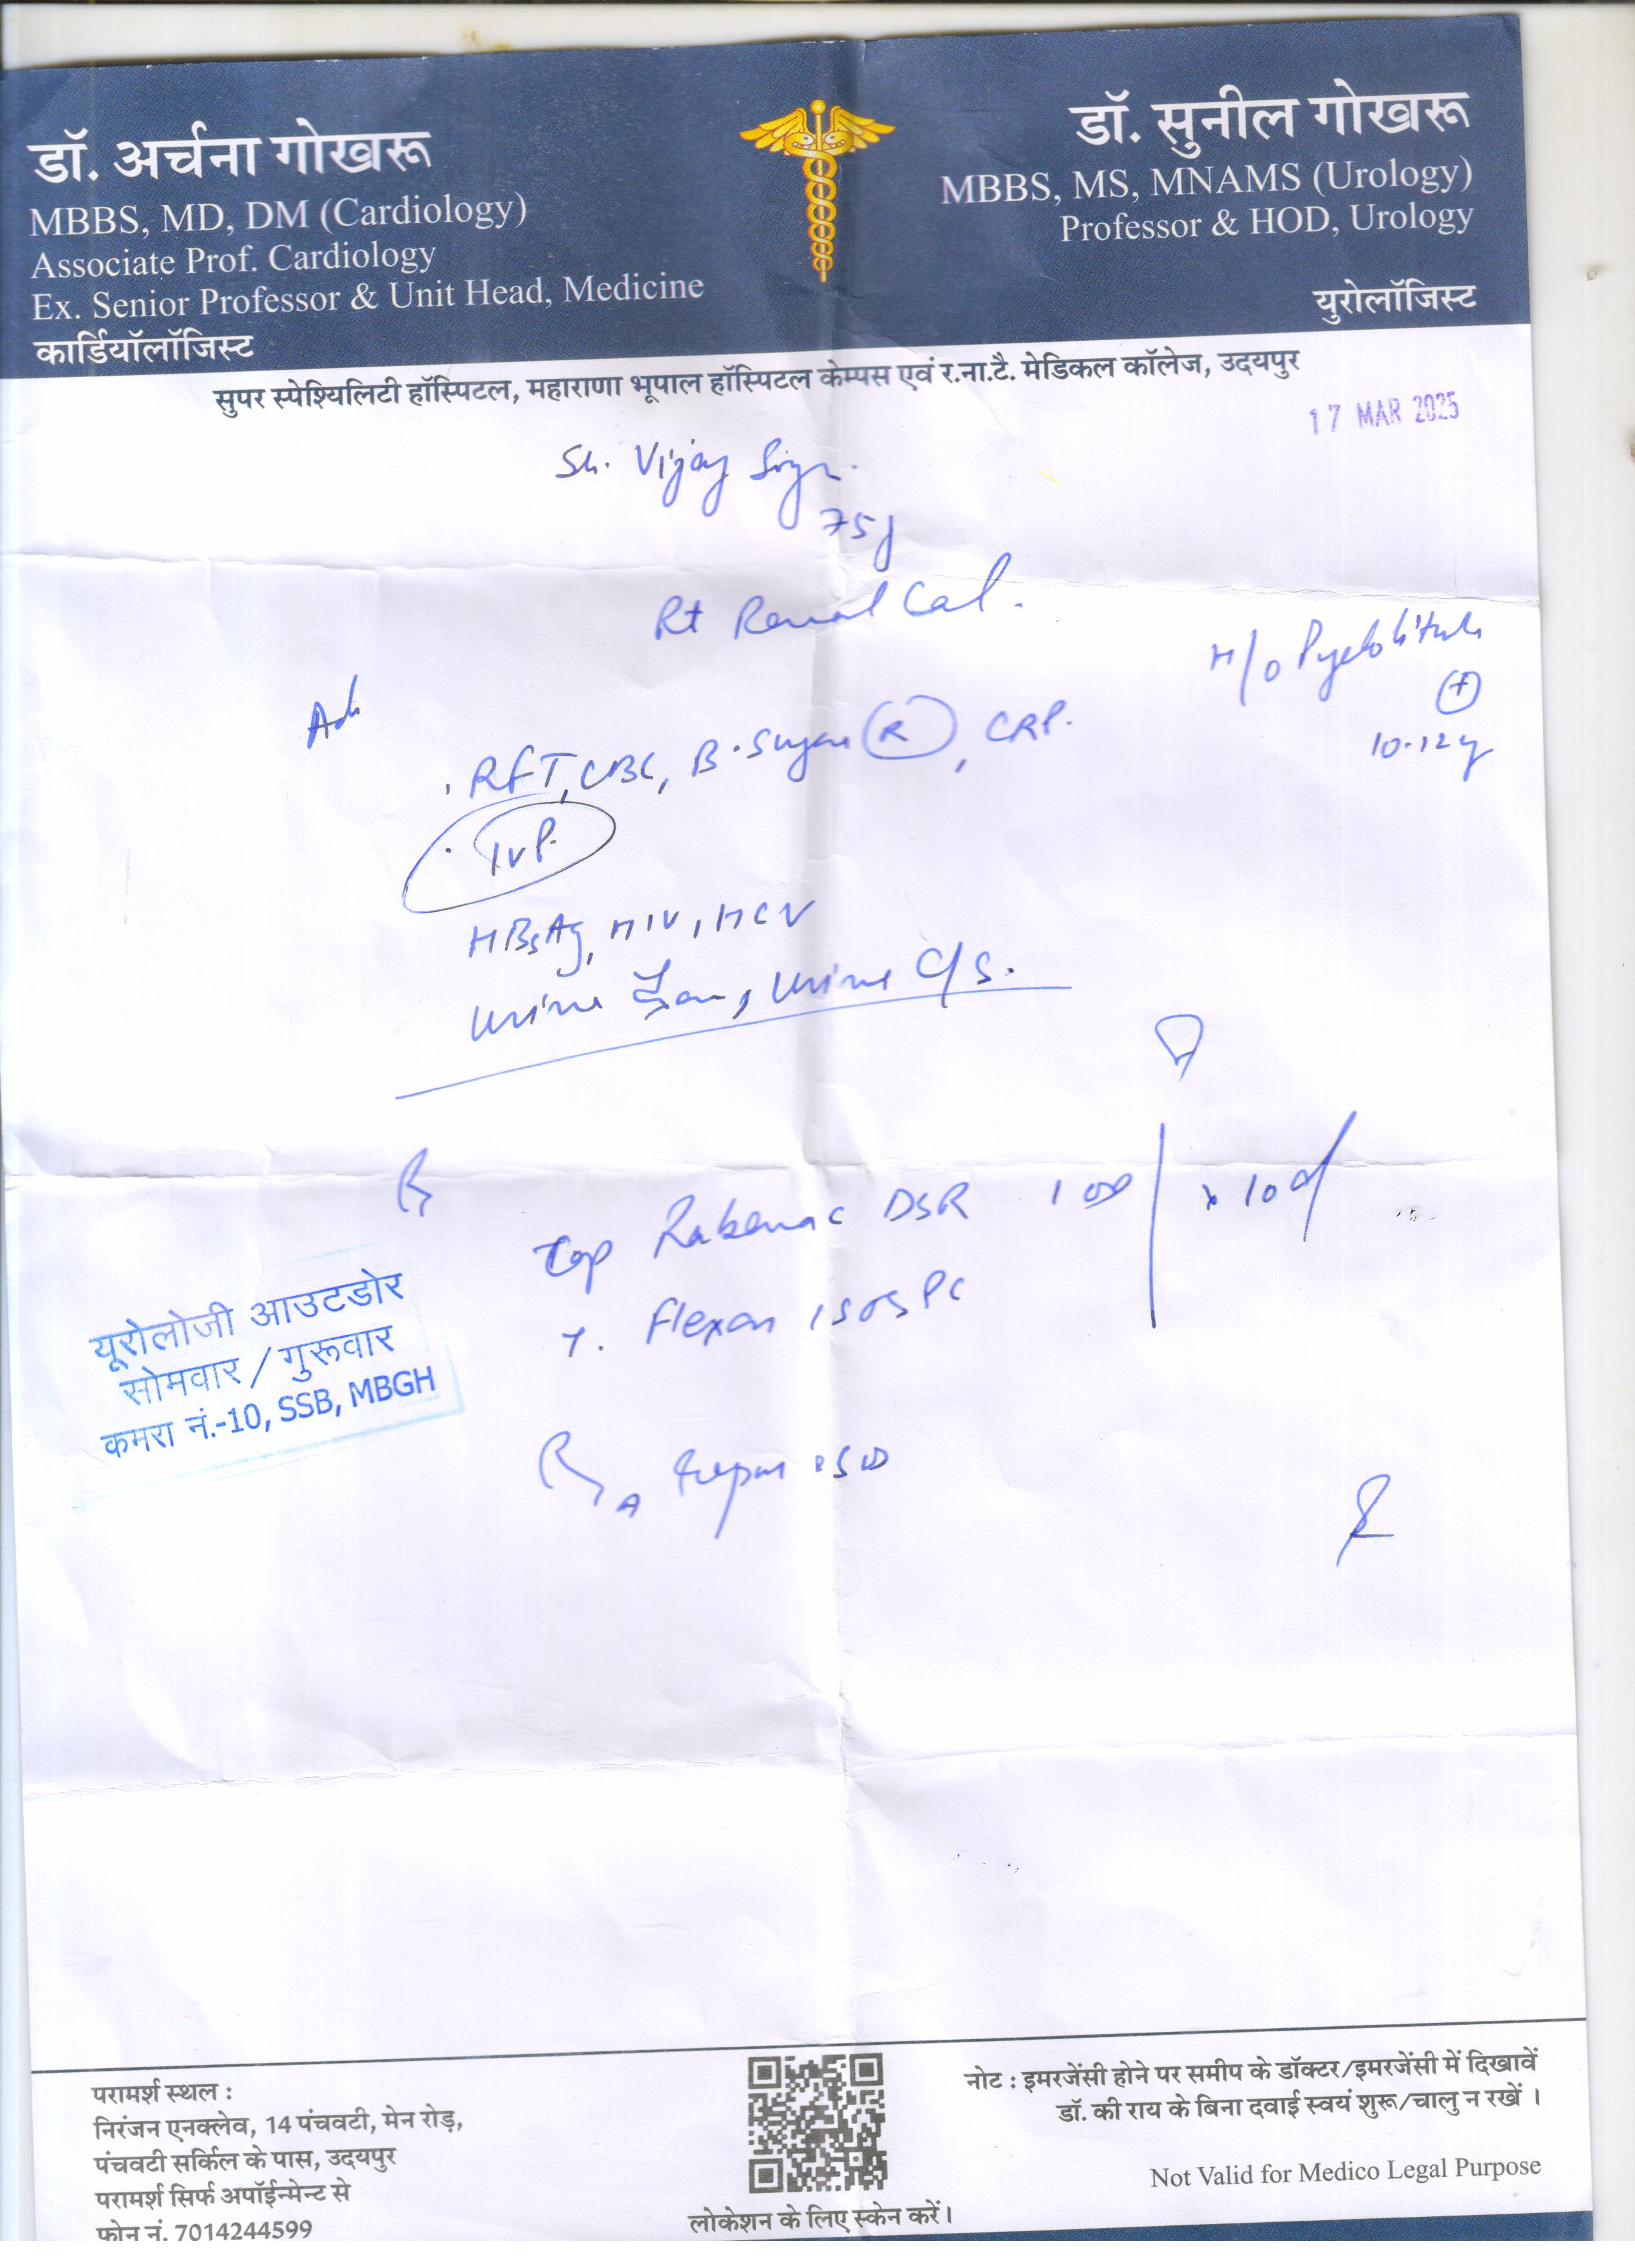 डॉ. अर्चना गोखरू
MBBS, MD, DM (Cardiology)
Associate Prof. Cardiology
Ex. Senior Professor & Unit Head, Medicine
कार्डियॉलॉजिस्ट
डॉ. सुनील गोखरू
MBBS, MS, MNAMS (Urology)
Professor & HOD, Urology
युरोलॉजिस्ट
सुपर स्पेश्यिलिटी हॉस्पिटल, महाराणा भूपाल हॉस्पिटल केम्पस एवं र.ना.टै. मेडिकल कॉलेज, उदयपुर
17 MAR 2025
Sh. Vijay
75y
Rt Renal Cal.
H/o
(+)
10-12y
Adv
RFT, CBC, B. Sugar (R), CRP.
IVP.
HBsAg, HIV, HCV
Urine, Urine C/S.
Rx
Cap DSR 1 OD x 10 d
T. Flexon 1 SOS PC
यूरोलोजी आउटडोर
सोमवार / गुरूवार
कमरा नं.-10, SSB, MBGH
परामर्श स्थल :
निरंजन एनक्लेव, 14 पंचवटी, मेन रोड़,
पंचवटी सर्किल के पास, उदयपुर
परामर्श सिर्फ अपॉईन्मेन्ट से
फोन नं. 7014244599
लोकेशन के लिए स्केन करें।
नोट : इमरजेंसी होने पर समीप के डॉक्टर/इमरजेंसी में दिखावें
डॉ. की राय के बिना दवाई स्वयं शुरू/चालु न रखें ।
Not Valid for Medico Legal Purpose